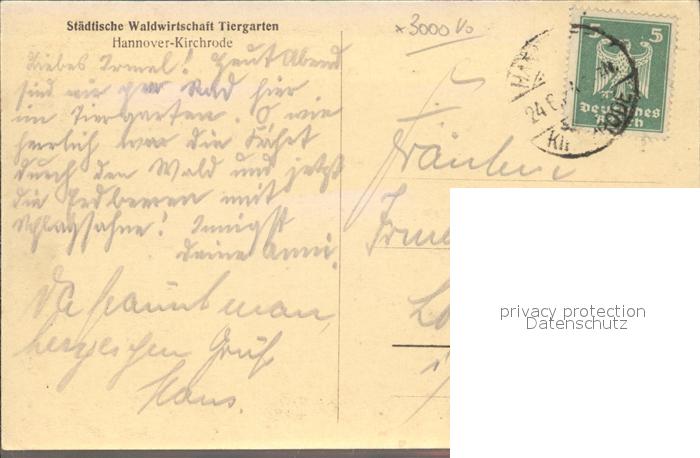 Städtische Waldwirtschaft Tiergarten
Hannover-Kirchrode
x 3000 Vo
Liebes Irmel! Heut Abend
sind wir per Rad hier
im Tiergarten. O wie
herrlich war die Fahrt
durch den Wald und jetzt
die Erdbeeren mit
Schlagsahne! Innigst
Deine Anni.
Da staunt man,
herzlichen Gruß
Hans.
5 5
Deutsches
Reich
24 6
Fräulein
privacy protection
Datenschutz